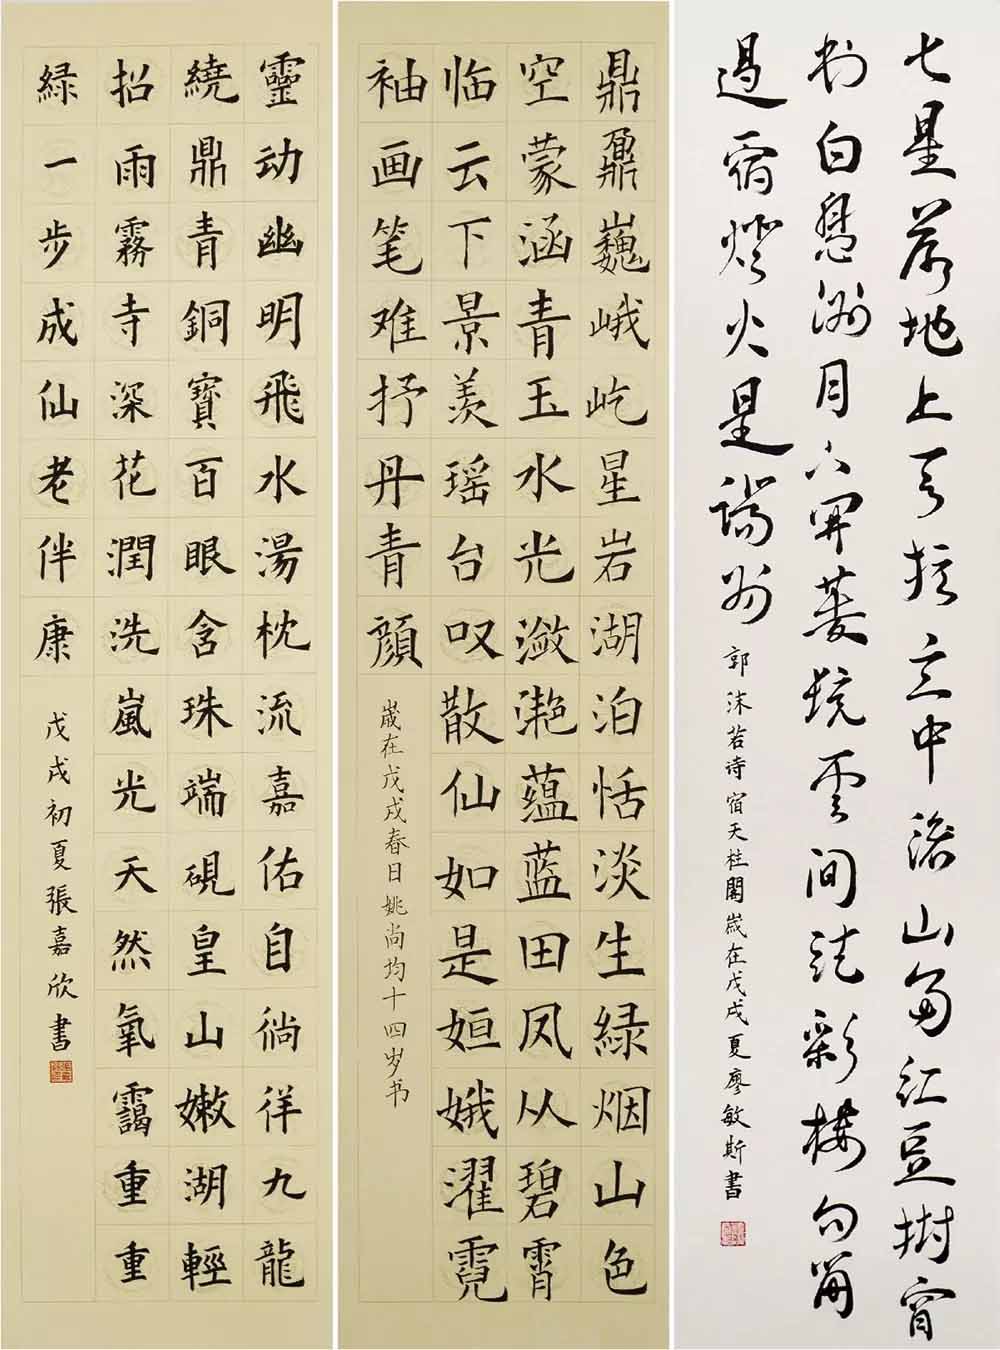 七星落地上天柱立中流山多红豆树窗
对白凫洲月下開菱镜雲间结彩楼勾留
過宿燈火是端州
郭沫若诗宿天柱閣歲在戊戌夏廖敏斯書
鼎鼐巍峨屹星岩湖泊恬淡生緑烟山色
空蒙涵青玉水光潋滟蕴蓝田凤从碧霄
临云下景羡瑶台叹散仙如是姮娥濯霓
袖画笔难抒丹青顔
歲在戊戌春日姚尚均十四岁书
靈动幽明飛水湯枕流嘉佑自徜徉九龍
繞鼎青銅寶百眼含珠端硯皇山嫩湖輕
招雨霧寺深花潤洗嵐光天然氧靄重重
緑一步成仙老伴康
戊戌初夏張嘉欣書